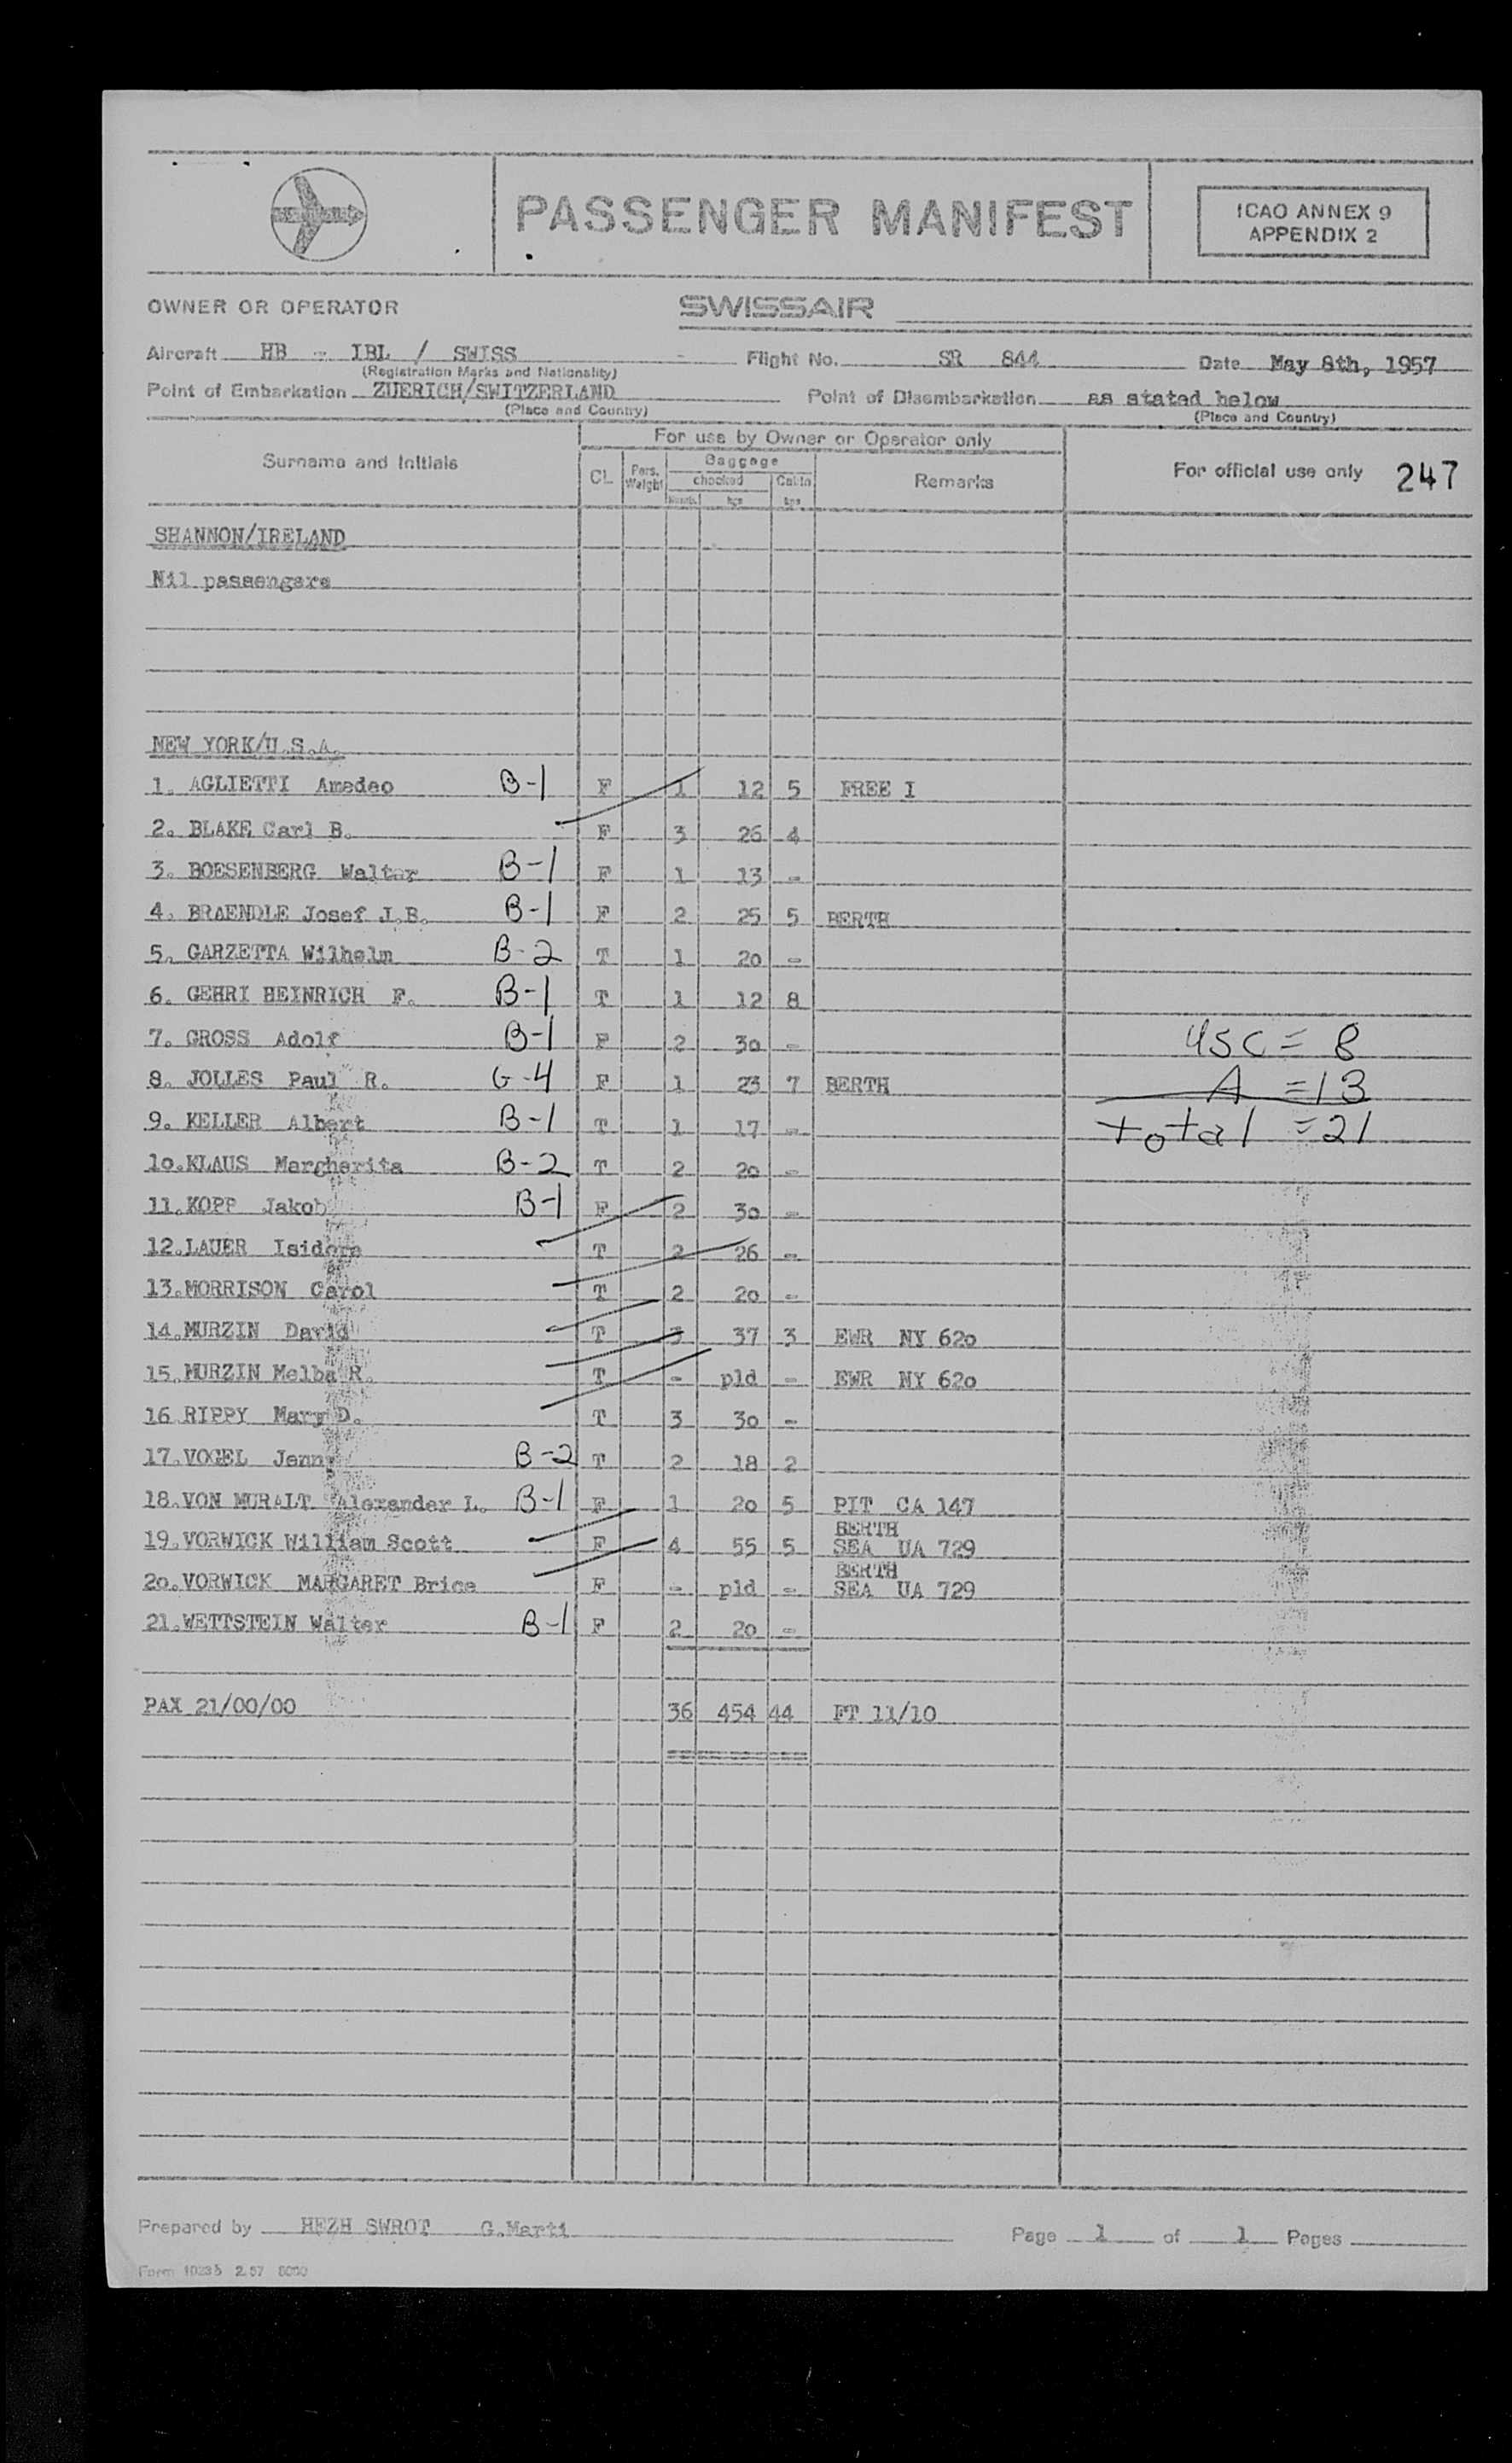 PASSENGER MANIFEST
ICAO ANNEX 9
APPENDIX 2
OWNER OR OPERATOR SWISSAIR
Aircraft HB - IBL / SWISS Flight No. SR 844 Date May 8th, 1957
(Registration Marks and Nationality)
Point of Embarkation ZUERICH/SWITZERLAND Point of Disembarkation as stated below
(Place and Country) (Place and Country)
For use by Owner or Operator only
Surname and Initials CL Pers. Weight Baggage Remarks For official use only 247
checked Cabin
Numb. kgs kgs
SHANNON/IRELAND
Nil passengers
NEW YORK/U.S.A.
1. AGLIETTI Amedeo B-1 F 1 12 5 FREE I
2. BLAKE Carl B. F 3 26 4
3. BOESENBERG Walter B-1 F 1 13 -
4. BRAENDLE Josef J.B. B-1 F 2 25 5 BERTH
5. GARZETTA Wilhelm B-2 T 1 20 -
6. GEHRI HEINRICH F. B-1 T 1 12 8
7. GROSS Adolf B-1 F 2 30 - USC = 8
8. JOLLES Paul R. G-4 F 1 23 7 BERTH A = 13
9. KELLER Albert B-1 T 1 17 - total = 21
10. KLAUS Margherita B-2 T 2 20 -
11. KOPP Jakob B-1 F 2 30 -
12. LAUER Isidore T 2 26 -
13. MORRISON Carol T 2 20 -
14. MURZIN David T 3 37 3 EWR NY 620
15. MURZIN Melba R. T - pld - EWR NY 620
16 RIPPY Mary D. T 3 30 -
17. VOGEL Jenny B-2 T 2 18 2
18. VON MURALT Alexander L. B-1 F 1 20 5 PIT CA 147
19. VORWICK William Scott F 4 55 5 BERTH SEA UA 729
20. VORWICK MARGARET Brice F - pld - BERTH SEA UA 729
21. WETTSTEIN Walter B-1 F 2 20 -
PAX 21/00/00 36 454 44 FT 11/10
Prepared by HEZH SWROT G.Marti Page 1 of 1 Pages
Form 10235 2.57 8000